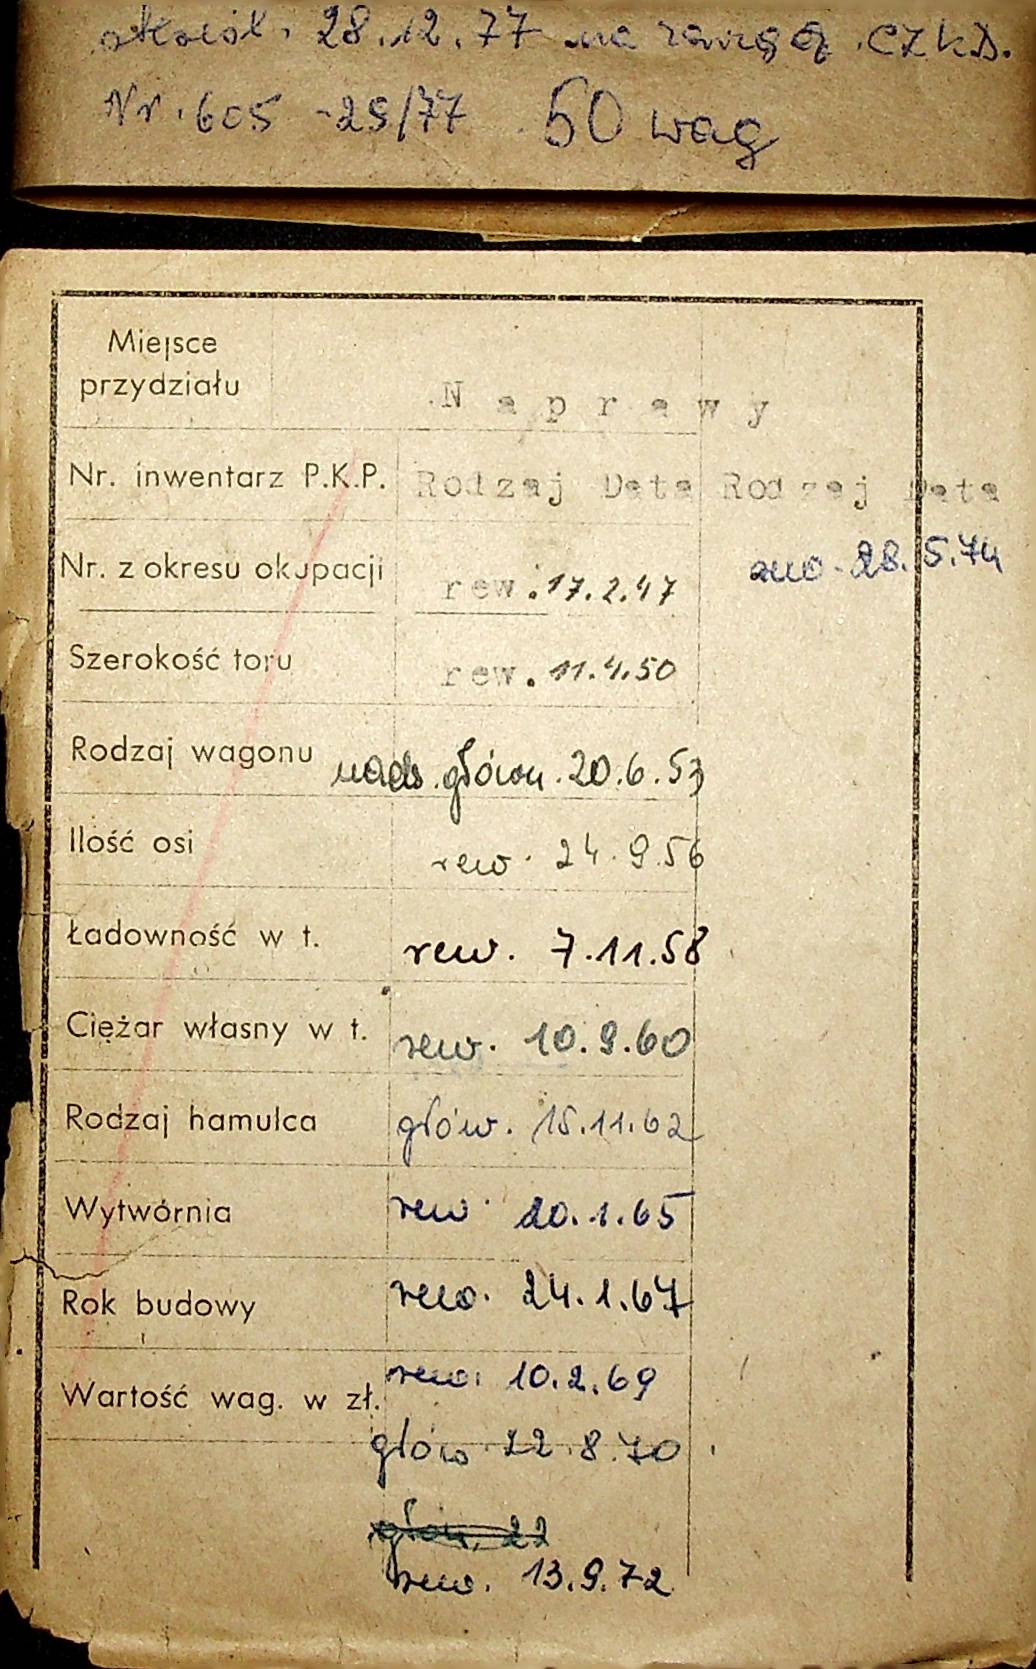 28.12.77 na CZKD.
Nr. 605 -29/77 50 wag
Miejsce
przydziału
N a p r a w y
Nr. inwentarz P.K.P. Rodzaj Data Rodzaj Data
Nr. z okresu okupacji rew. 17.2.47 28.5.74
Szerokość toru rew. 11.4.50
Rodzaj wagonu nadz. główn. 20.6.53
Ilość osi rew. 24.9.56
Ładowność w t. rew. 7.11.58
Ciężar własny w t. rew. 10.9.60
Rodzaj hamulca głów. 15.11.62
Wytwórnia rew. 20.1.65
Rok budowy rew. 24.1.67
Wartość wag. w zł. rew. 10.2.69
głów. 22.8.70
głów. 22
rew. 13.9.72